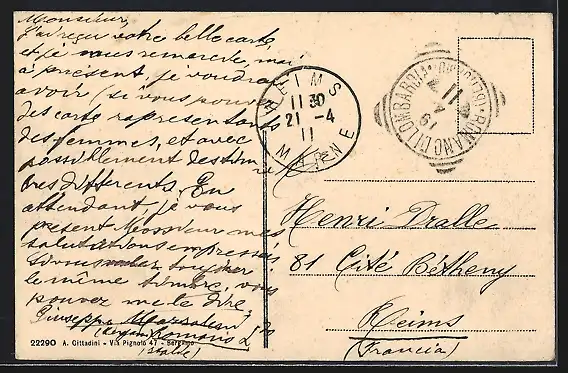 Monsieur,
J'ai reçu votre belle carte,
et je vous remercie, mai
à présent, je voudrai
avoir (si vous pouvez
des carte representants
des femmes, et avec
possiblement des timbre
tres différents. En
attendant, je vous
present Monsieur mes
salutations empressés
le même timbre, vous
pouvez me le dire,
Giuseppe
Romano L
22290 A. Cittadini - Via Pignolo 47 - Bergamo
REIMS
11 30
21 - 4
11
MARNE
ROMANO DI LOMBARDIA
11
Henri Dralle
81 Cité Bétheny
Reims
(Francia)